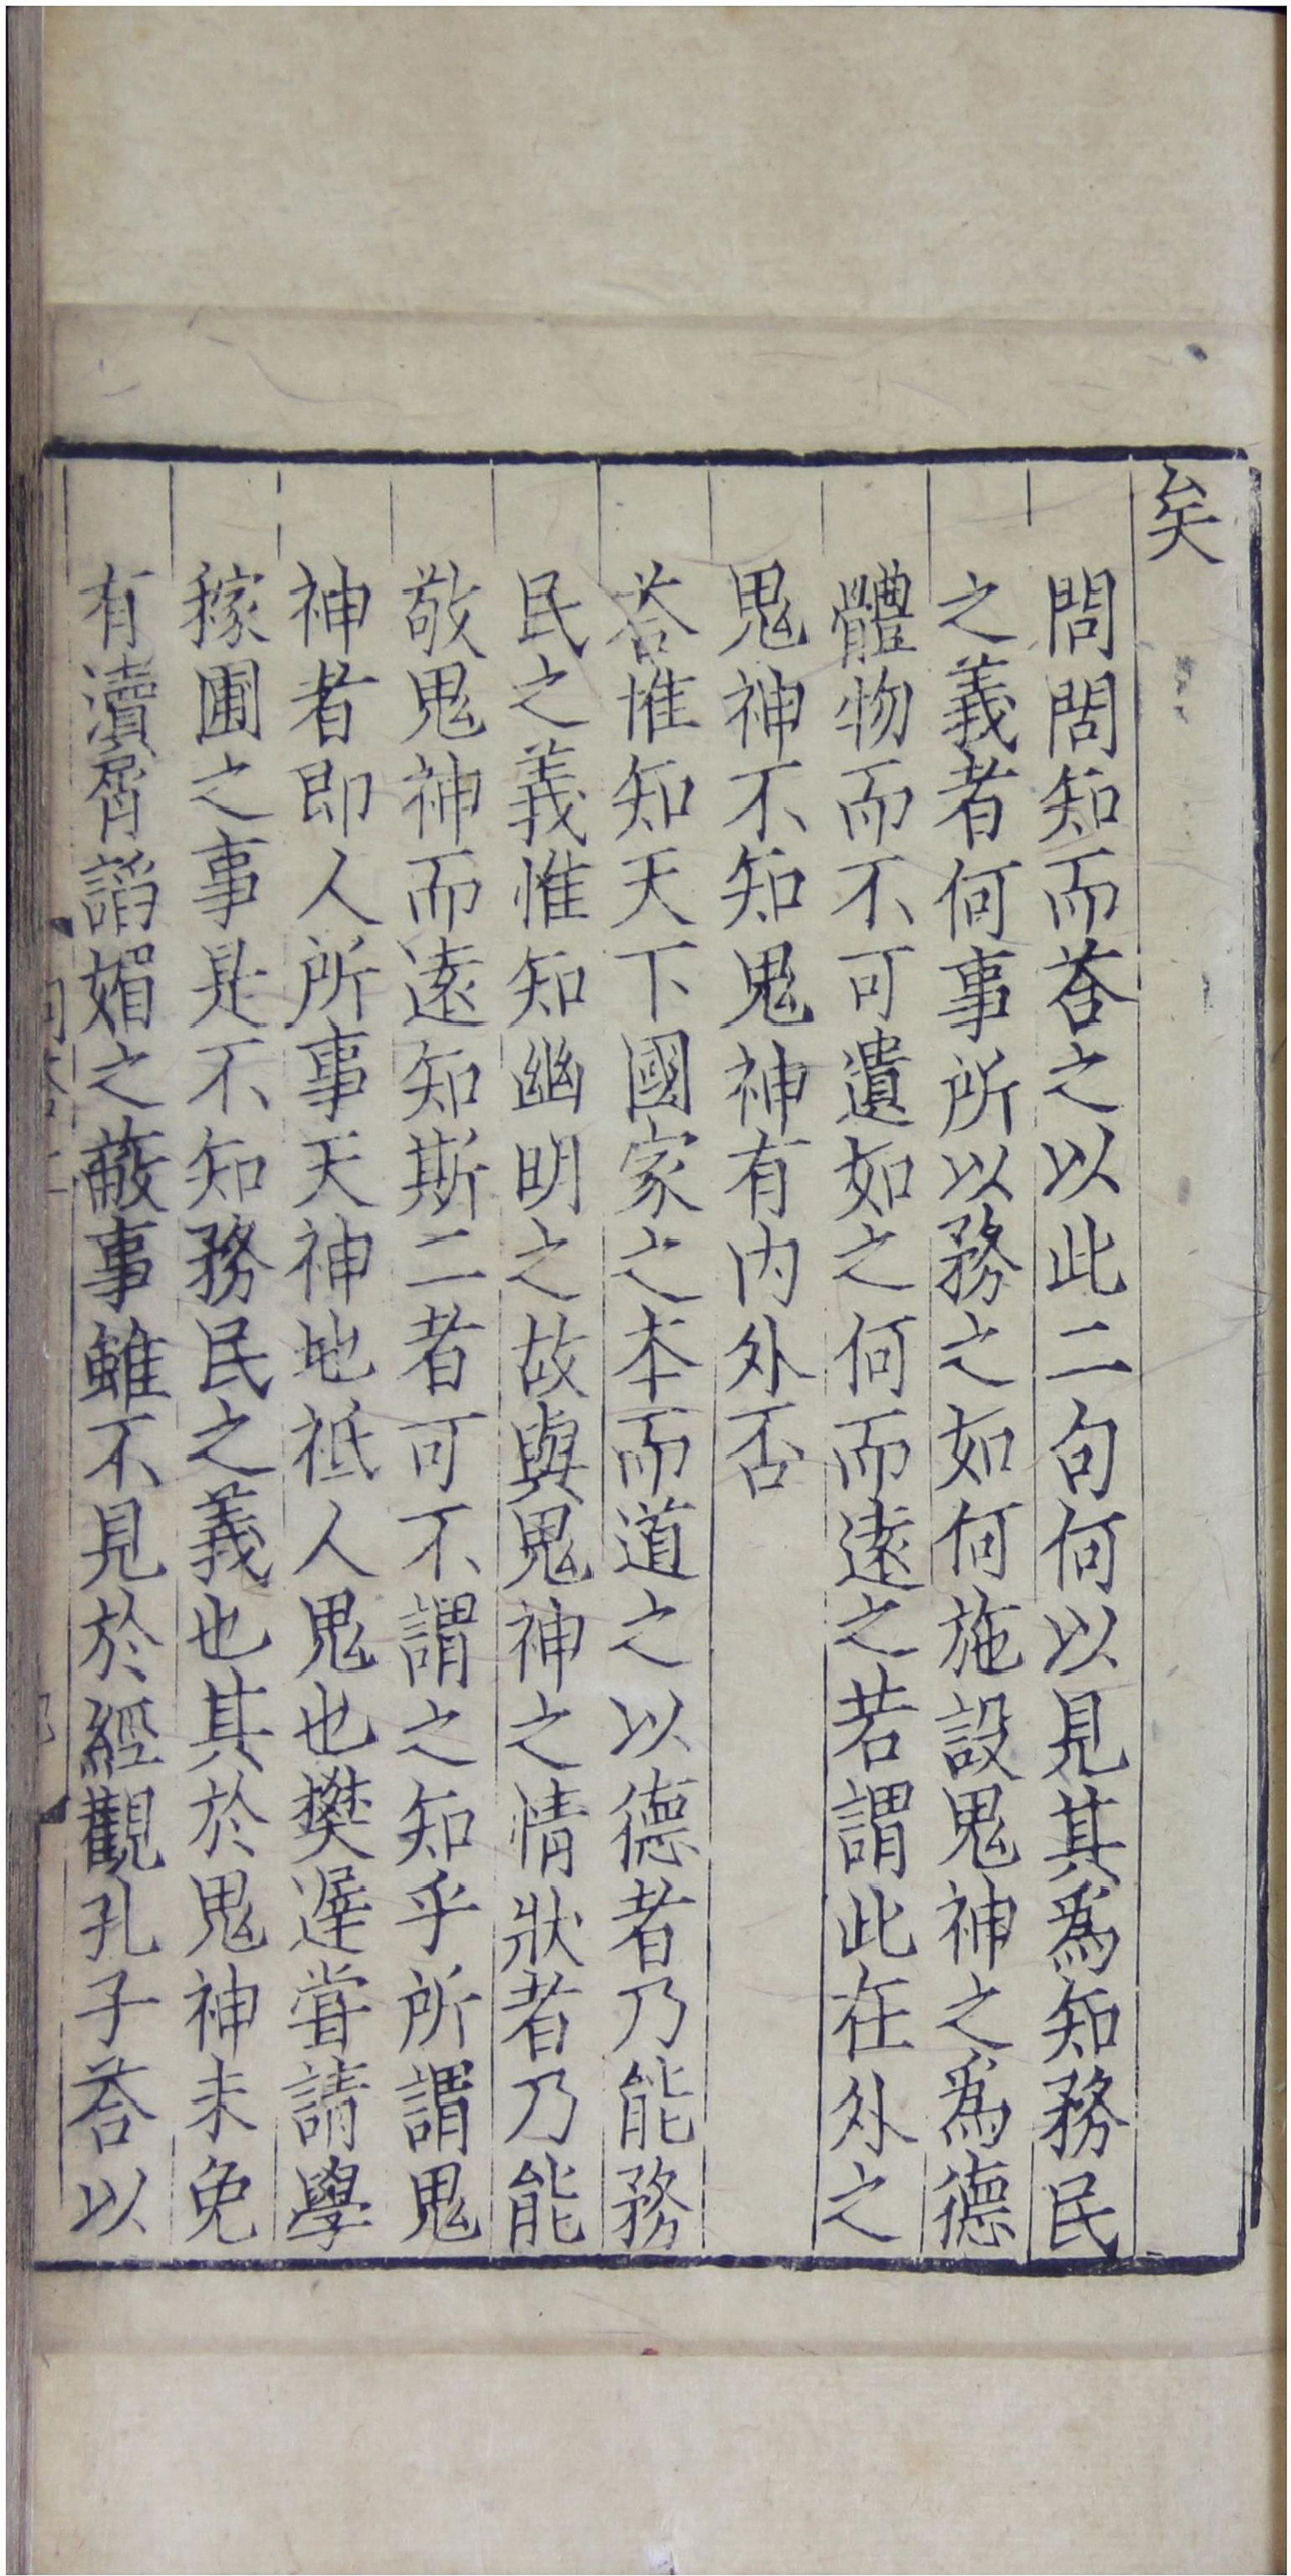 矣
問問知而荅之以此二句何以見其爲知務民
之義者何事所以務之如何施設鬼神之爲德
體物而不可遺如之何而遠之若謂此在外之
鬼神不知鬼神有内外否
荅惟知天下國家之本而道之以德者乃能務
民之義惟知幽明之故與鬼神之情狀者乃能
敬鬼神而遠知斯二者可不謂之知乎所謂鬼
神者即人所事天神地祗人鬼也樊遲甞請學
稼圃之事是不知務民之義也其於鬼神未免
有瀆脀謟媚之蔽事雖不見於經觀孔子荅以